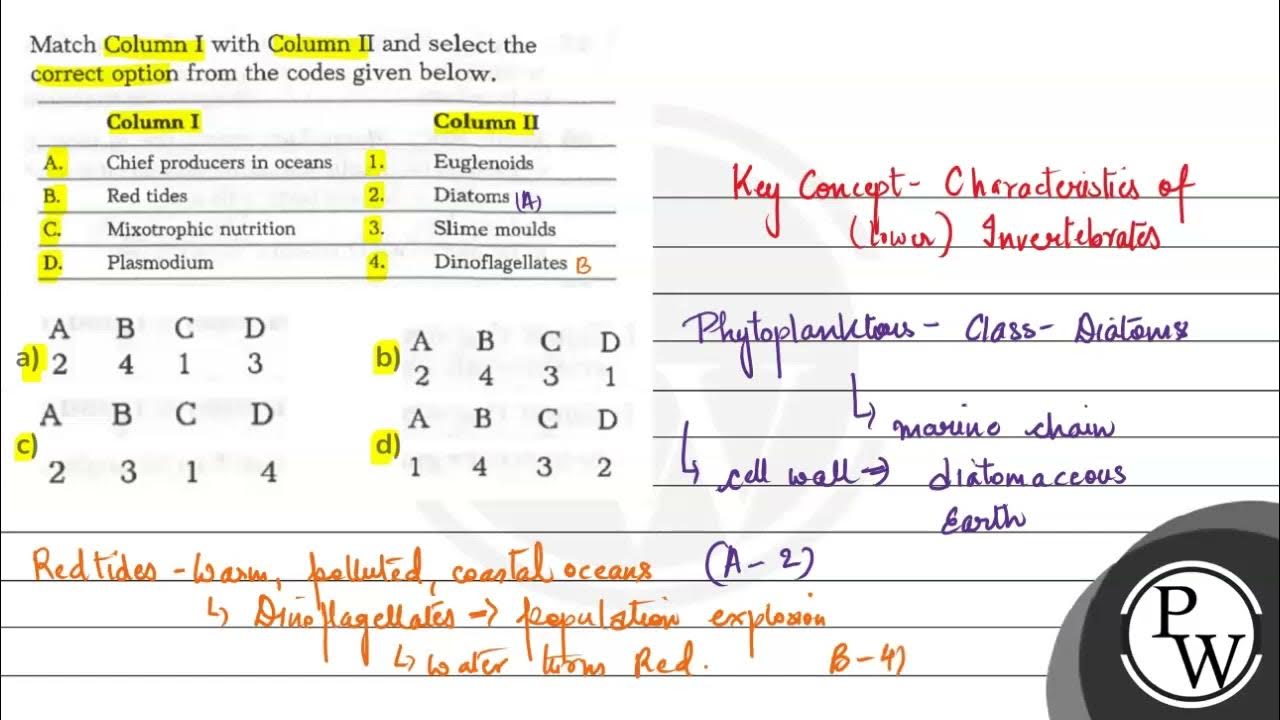 Match Column I with Column II and select the
correct option from the codes given below.
Column I Column II
A. Chief producers in oceans 1. Euglenoids
B. Red tides 2. Diatoms (A)
C. Mixotrophic nutrition 3. Slime moulds
D. Plasmodium 4. Dinoflagellates B
A B C D
a) 2 4 1 3
A B C D
b) 2 4 3 1
A B C D
c) 2 3 1 4
A B C D
d) 1 4 3 2
Key Concept - Characteristics of
(Lower) Invertebrates
Phytoplanktons - Class - Diatoms
↳ marine chain
↳ cell wall → diatomaceous
Earth
Red tides - Warm, polluted, coastal oceans (A - 2)
↳ Dinoflagellates → population explosion
↳ water turns Red. B - 4)
P
W